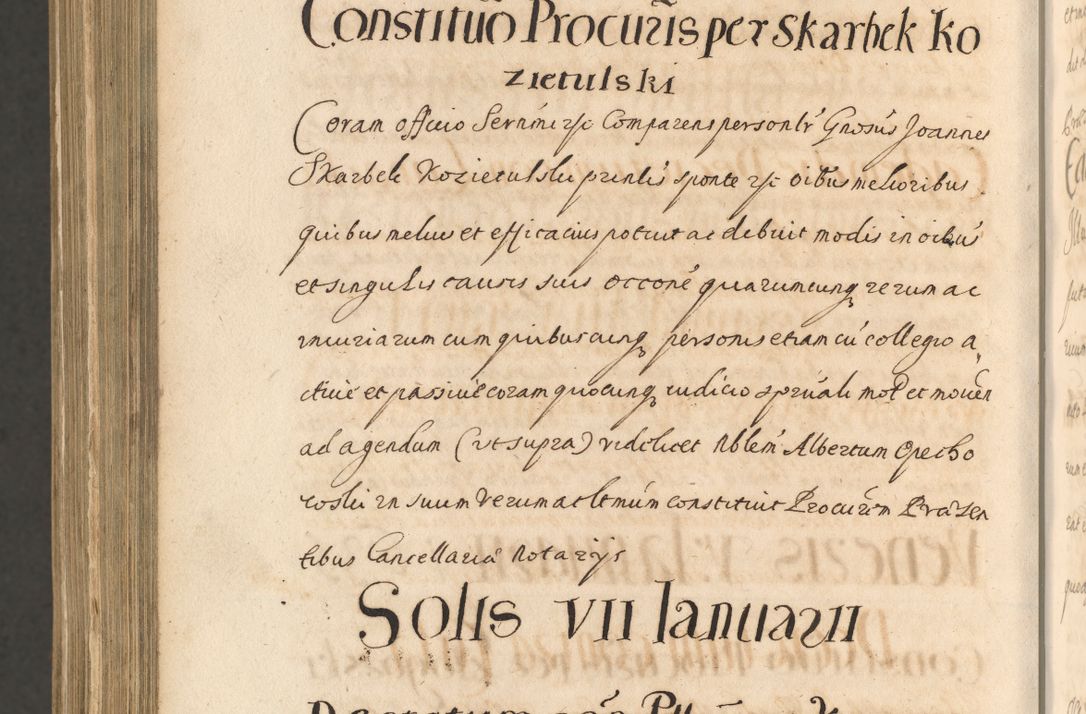 Constituõ Procuris per Skarbek Ko
zietulski
Coram officio Sernmi rſc Comparens personlr Gnosus Joannes
Skarbek Kozietulski prentis sponte rſc oibus melioribus
quibus melius et efficacius potuit ac debuit modis in oibus
et singulis causis suis occone quarumcunq rerum ac
iniuriarum cum quibuscunq personis etiam cu collegio a
ctive et passive coram quocunq iudicio spruali mot et moven
ad agendum (ut supra) videlicet Nblem Albertum Opecho
woski in suum verum ac ltmum constituit Procurem Præsen
tibus Cancellariæ Notarys
Solis VII Ianuarii